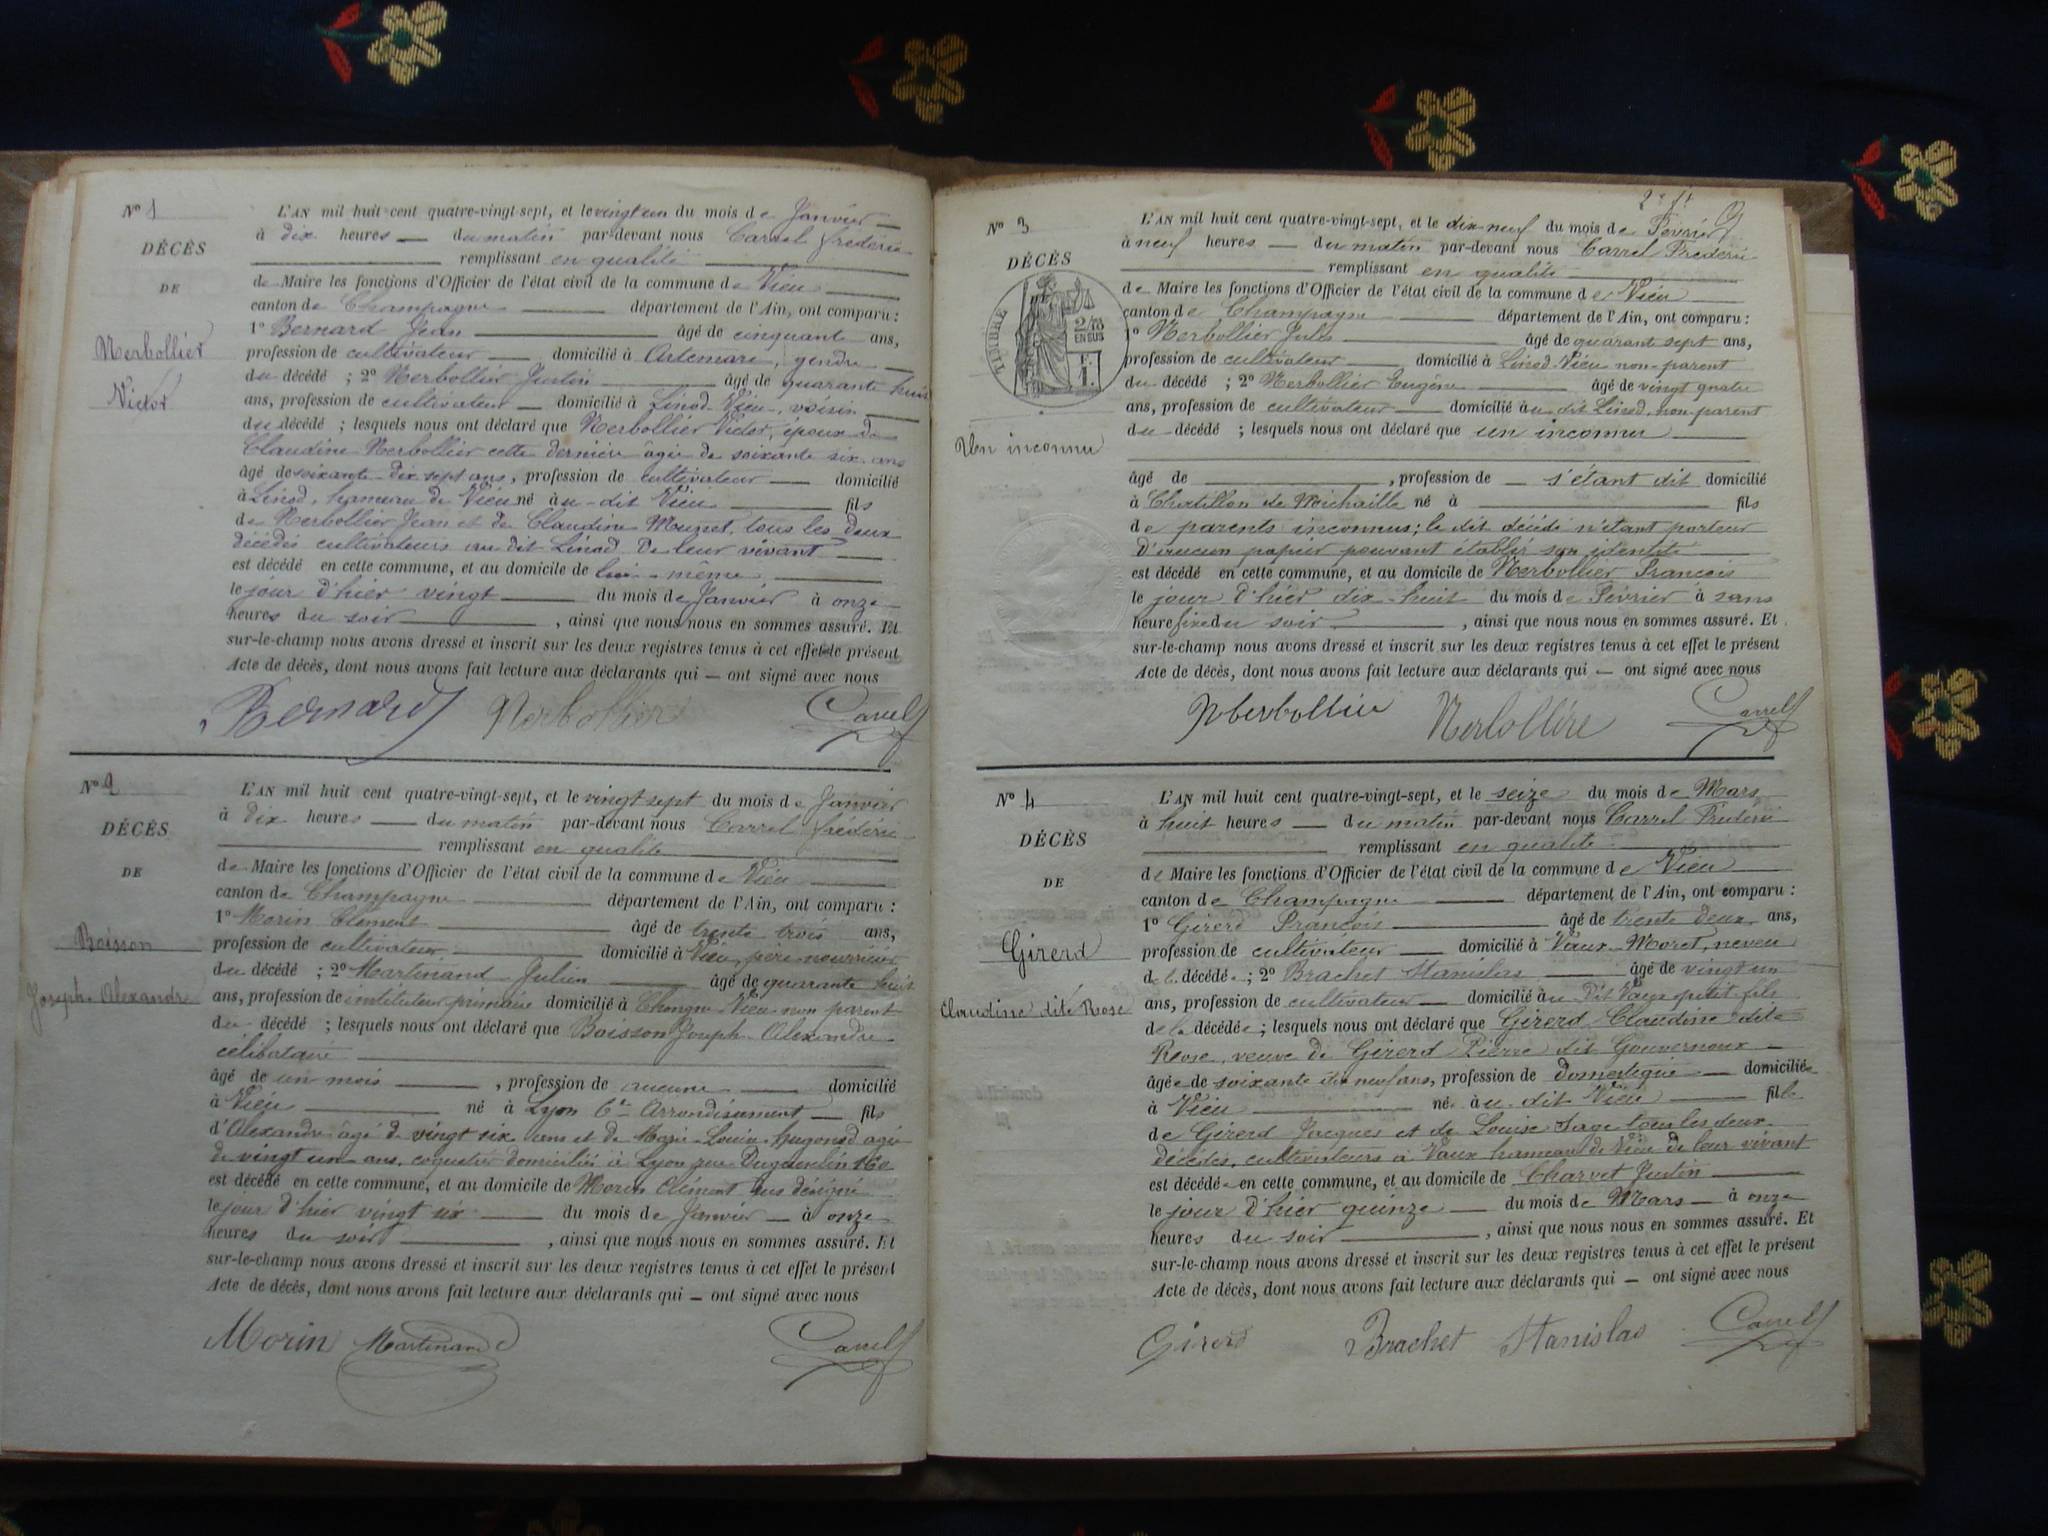 N° 1
DÉCÈS
DE
Merbollier
Victor
L'AN mil huit cent quatre-vingt-sept, et le vingt un du mois de Janvier
à dix heures du matin par-devant nous Carrel frédéric
remplissant en qualité
de Maire les fonctions d'Officier de l'état civil de la commune de Vieu
canton de Champagne département de l'Ain, ont comparu :
1° Bernard Jean âgé de cinquante ans,
profession de cultivateur domicilié à Artemare, gendre
du décédé ; 2° Merbollier Justin âgé de quarante huit
ans, profession de cultivateur domicilié à Linod-Vieu, voisin
du décédé ; lesquels nous ont déclaré que Merbollier Victor, époux de
Claudine Merbollier cette dernière âgée de soixante six ans
âgé de soixante dix sept ans, profession de cultivateur domicilié
à Linod, hameau de Vieu né au dit Vieu fils
de Merbollier Jean et de Claudine Munet, tous les deux
décédés cultivateurs au dit Linod de leur vivant
est décédé en cette commune, et au domicile de lui-même
le jour d'hier vingt du mois de Janvier à onze
heures du soir, ainsi que nous nous en sommes assuré. Et
sur-le-champ nous avons dressé et inscrit sur les deux registres tenus à cet effet le présent
Acte de décès, dont nous avons fait lecture aux déclarants qui — ont signé avec nous
Bernard Merbollier Carrel
N° 2
DÉCÈS
DE
Boisson
Joseph-Alexandre
L'AN mil huit cent quatre-vingt-sept, et le vingt sept du mois de Janvier
à dix heures du matin par-devant nous Carrel frédéric
remplissant en qualité
de Maire les fonctions d'Officier de l'état civil de la commune de Vieu
canton de Champagne département de l'Ain, ont comparu :
1° Morin Clément âgé de trente trois ans,
profession de cultivateur domicilié à Vieu, père nourricier
du décédé ; 2° Martinand Julien âgé de quarante huit
ans, profession de instituteur primaire domicilié à Chongne-Vieu non parent
du décédé ; lesquels nous ont déclaré que Boisson Joseph-Alexandre
célibataire
âgé de un mois, profession de aucune domicilié
à Vieu né à Lyon 6e Arrondissement fils
d'Alexandre âgé de vingt six ans et de Marie-Louise Hugonod âgée
de vingt un ans, domiciliés à Lyon rue Duguesclin 160
est décédé en cette commune, et au domicile de Morin Clément sus désigné
le jour d'hier vingt six du mois de Janvier à onze
heures du soir, ainsi que nous nous en sommes assuré. Et
sur-le-champ nous avons dressé et inscrit sur les deux registres tenus à cet effet le présent
Acte de décès, dont nous avons fait lecture aux déclarants qui — ont signé avec nous
Morin Martinand Carrel
N° 3
DÉCÈS
TIMBRE
2/10
EN SUS
F.
1.
Un inconnu
L'AN mil huit cent quatre-vingt-sept, et le dix-neuf du mois de Février
à neuf heures du matin par-devant nous Carrel Frédéric
remplissant en qualité
de Maire les fonctions d'Officier de l'état civil de la commune de Vieu
canton de Champagne département de l'Ain, ont comparu :
1° Merbollier Jules âgé de quarante sept ans,
profession de cultivateur domicilié à Linod-Vieu non-parent
du décédé ; 2° Merbollier Eugène âgé de vingt quatre
ans, profession de cultivateur domicilié au dit Linod, non-parent
du décédé ; lesquels nous ont déclaré que un inconnu
âgé de , profession de s'étant dit domicilié
à Chatillon de Michaille né à fils
de parents inconnus ; le dit décédé n'étant porteur
d'aucun papier pouvant établir son identité
est décédé en cette commune, et au domicile de Merbollier François
le jour d'hier dix-huit du mois de Février à sans
heure fixe du soir, ainsi que nous nous en sommes assuré. Et
sur-le-champ nous avons dressé et inscrit sur les deux registres tenus à cet effet le présent
Acte de décès, dont nous avons fait lecture aux déclarants qui — ont signé avec nous
Merbollier Merbollier Carrel
N° 4
DÉCÈS
DE
Girerd
Claudine dite Rose
L'AN mil huit cent quatre-vingt-sept, et le seize du mois de Mars
à huit heures du matin par-devant nous Carrel Frédéric
remplissant en qualité
de Maire les fonctions d'Officier de l'état civil de la commune de Vieu
canton de Champagne département de l'Ain, ont comparu :
1° Girerd François âgé de trente deux ans,
profession de cultivateur domicilié à Vaux-Moret, neveu
de la décédée ; 2° Brachet Stanislas âgé de vingt un
ans, profession de cultivateur domicilié au dit Vaux petit fils
de la décédée ; lesquels nous ont déclaré que Girerd Claudine dite
Rose, veuve de Girerd Pierre dit Gouvernoux
âgée de soixante dix neuf ans, profession de domestique domiciliée
à Vieu née au dit Vieu fille
de Girerd Jacques et de Louise Sage tous les deux
décédés, cultivateurs à Vaux hameau de Vieu de leur vivant
est décédée en cette commune, et au domicile de Charvet Justin
le jour d'hier quinze du mois de Mars à onze
heures du soir, ainsi que nous nous en sommes assuré. Et
sur-le-champ nous avons dressé et inscrit sur les deux registres tenus à cet effet le présent
Acte de décès, dont nous avons fait lecture aux déclarants qui — ont signé avec nous
Girerd Brachet Stanislas Carrel